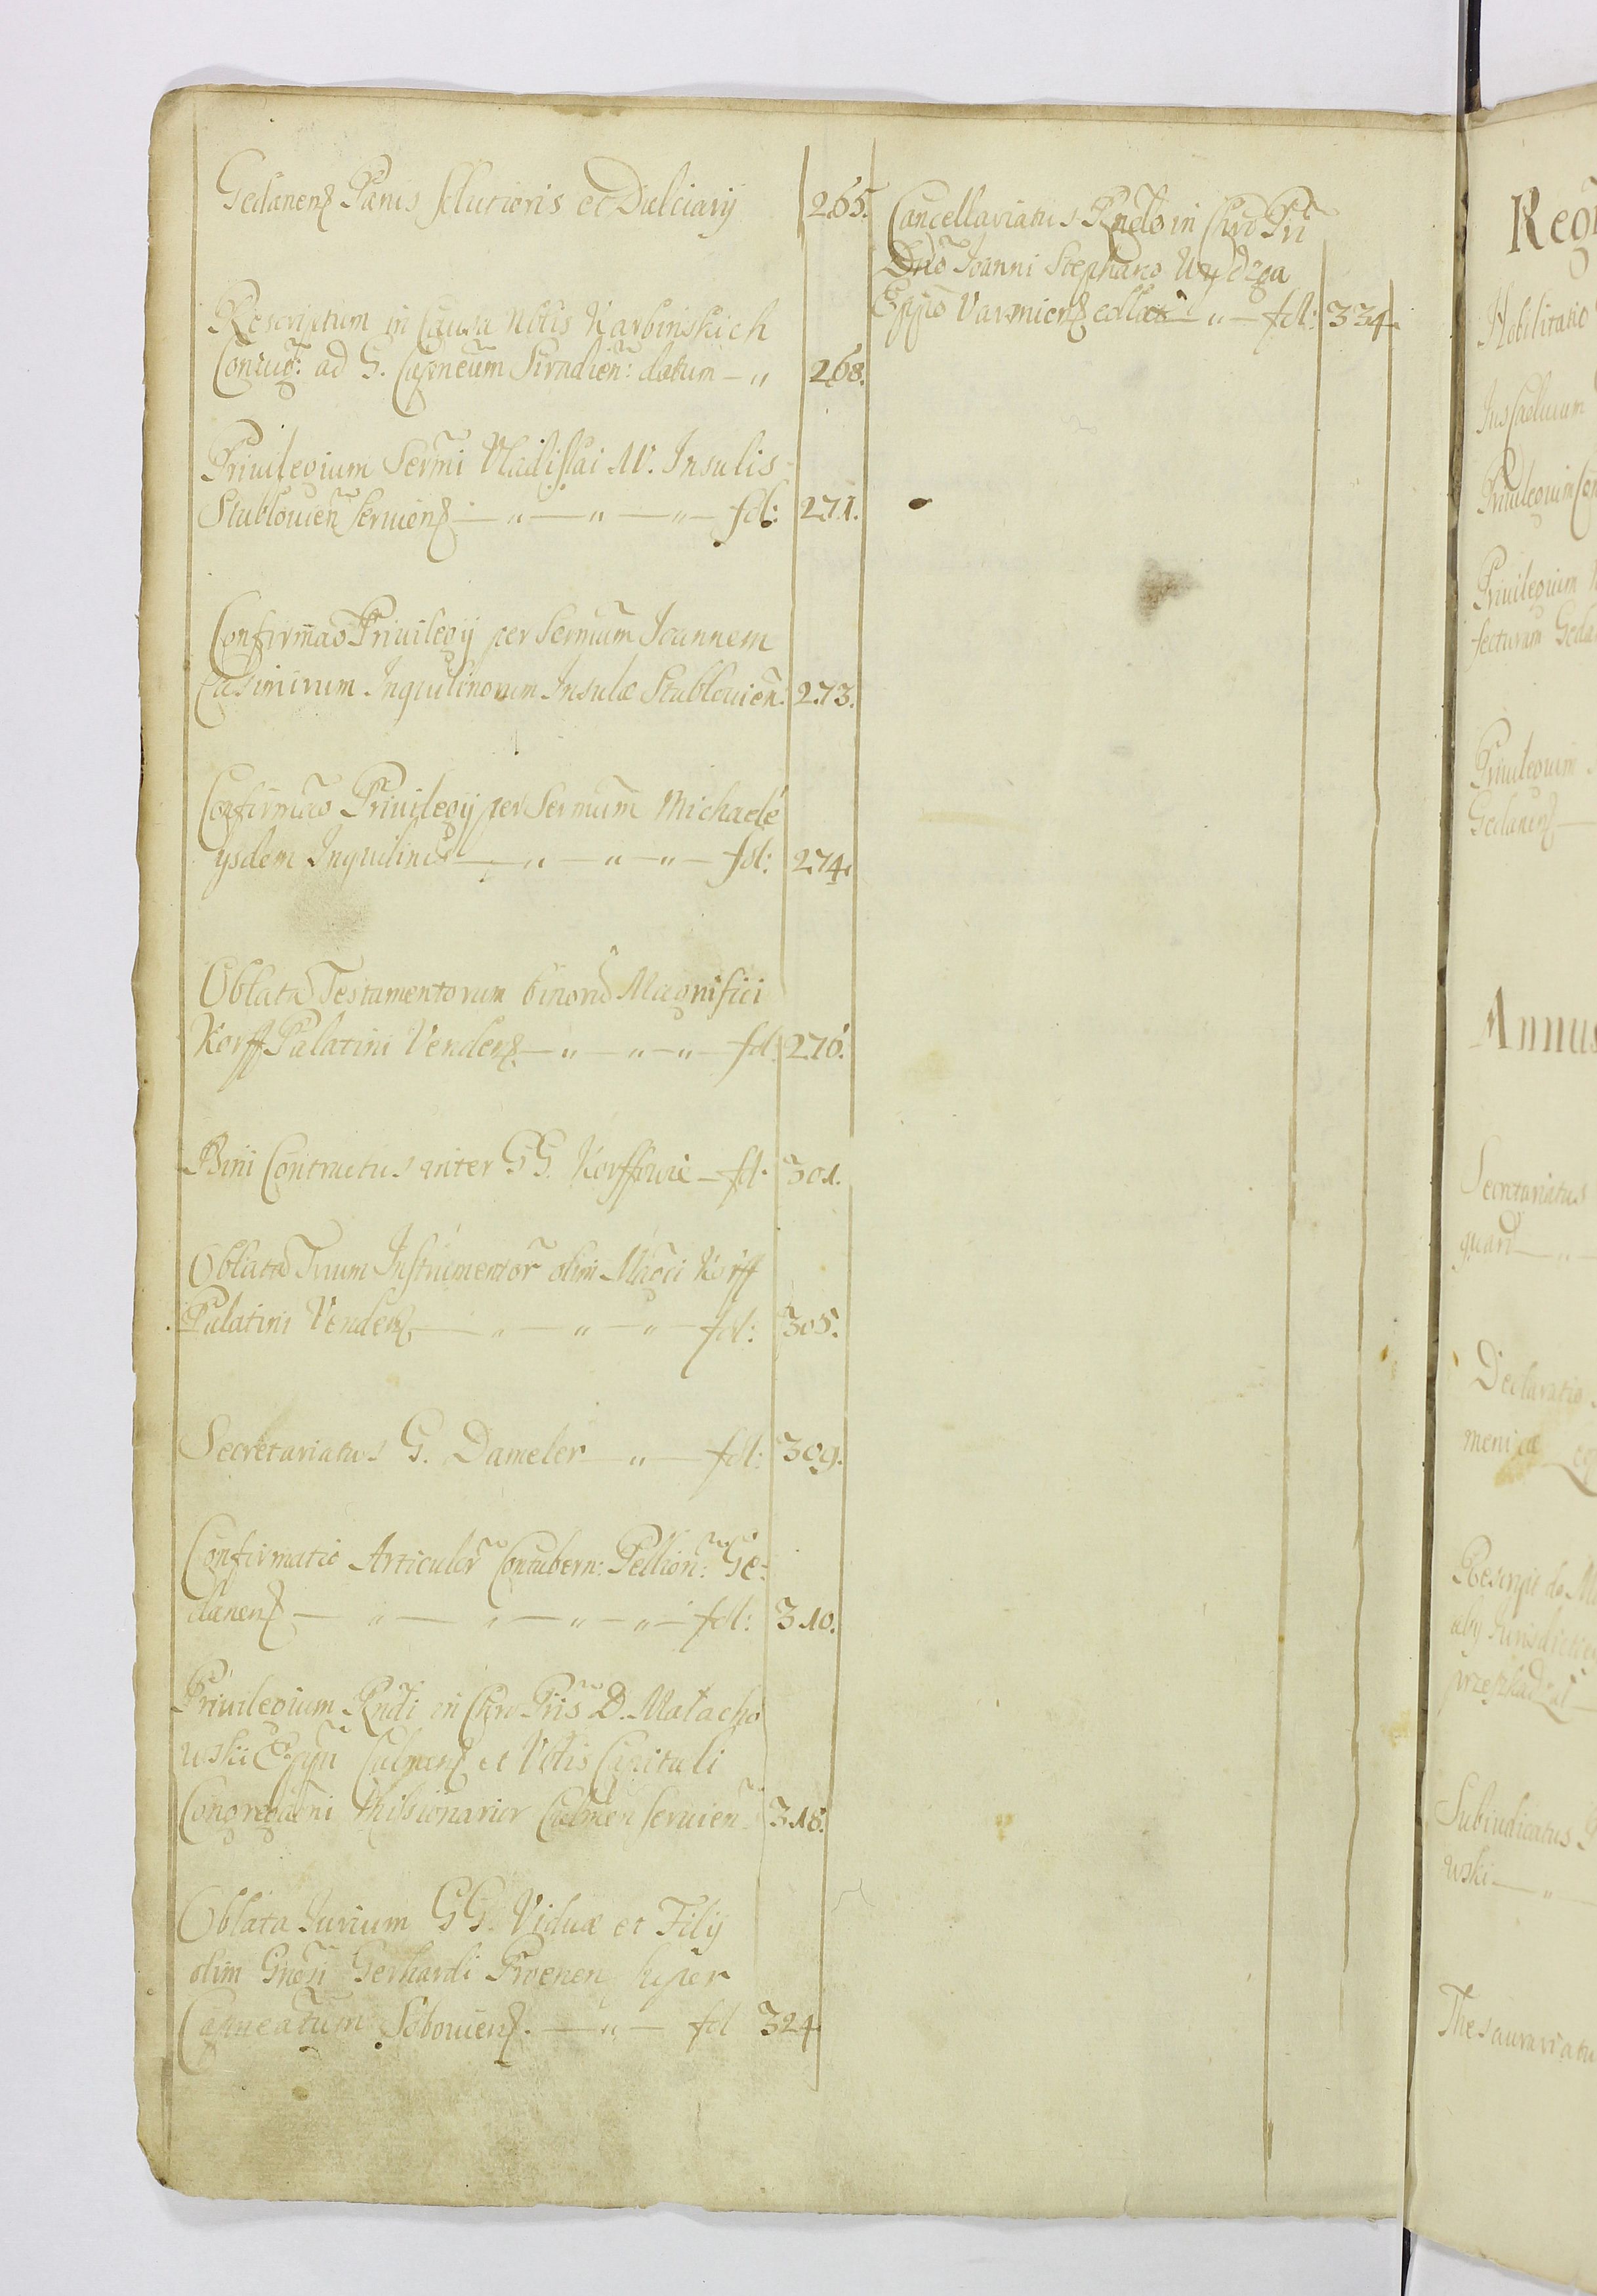 Gedanens Panis  et Dulciarij 265.
Rescriptum in Causa Nblis Karbinskich
Coniug: ad G. Capneum Siradien: datum 268.
Priuilegium Sermi Vladislai IV. Insulis
Stublouien seruiens fol: 271.
Confirmao Priuilegij per Sermum Joannem
Casimirum Inquilinorum Insulæ Stublouien: 273.
Confirmao Priuilegij per Sermum Michaele
ysdem Inquilinis fol: 274.
Oblata Testamentorum binorũ Magnifici
Korff Palatini Vendens fol: 276.
Bini Contractus inter GG. Korffowie fol. 301.
Oblata Trium Instrumentor olim Magci Korff
Palatini Vendens fol: 305.
Secretariatus G. Dameler fol: 309.
Confirmatio Articulor Contubern: Pellion: Ge-
danens fol: 310.
Priuilegium Rndi in Chro Pris D. Małacho
wski Eppi Culmens et Vblis Capituli
Congregaoni Missionarior Culmen seruien 318.
Oblata Jurium GG. Viduæ et Filij
olim Gnosi Gerhardi Proenen super
Capneatum Sobouiens. fol 324.
Cancellariatus Rndo in Chro Pri
Dno Joanni Stephano Wydzga
Eppo Varmiens collat fol: 334.
Reg
Nobilitatio
Jus
Priuilegium Con
Priuilegium
fecturam Geda
Priuilegium
Gedanens
Annus
Secretariatus
Declaratio
Rescript do
aby Jurisdictio
Subiudicatus
wski
Thesaurariatu